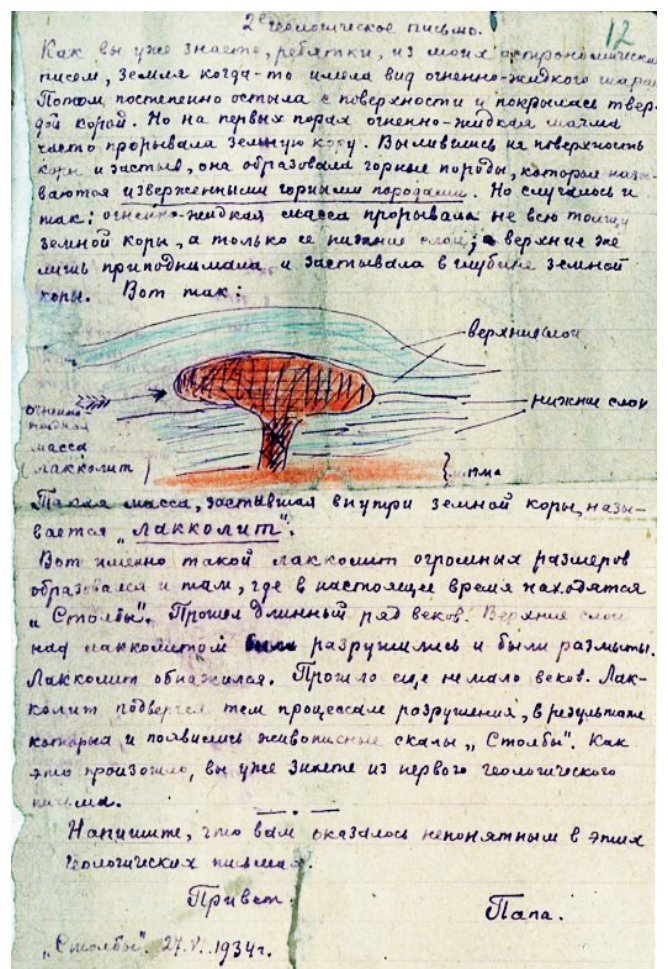 2е геологическое письмо.
12
Как вы уже знаете, ребятки, из моих астрономических
писем, земля когда-то имела вид огненно-жидкого шара.
Потом постепенно остыла с поверхности и покрылась твер-
дой корой. Но на первых порах огненно-жидкая магма
часто прорывала земную кору. Вылившись на поверхность
коры и застыв, она образовала горные породы, которые назы-
ваются изверженными горными породами. Но случалось и
так: огненно-жидкая масса прорывала не всю толщу
земной коры, а только ее нижние слои; верхние же
лишь приподнимала и застывала в глубине земной
коры. Вот так:
верхние слои
нижние слои
огненно
жидкая
масса
(лакколит)
магма
Такая масса, застывшая внутри земной коры, назы-
вается „лакколит".
Вот именно такой лакколит огромных размеров
образовался и там, где в настоящее время находятся
„Столбы". Прошел длинный ряд веков. Верхние слои
над лакколитом разрушились и были размыты.
Лакколит обнажился. Прошло еще не мало веков. Лак-
колит подвергся тем процессам разрушения, в результате
которых и появились живописные скалы „Столбы". Как
это произошло, вы уже знаете из первого геологического
письма.
Напишите, что вам оказалось непонятным в этих
геологических письмах.
Привет.
Папа.
„Столбы". 1934г.